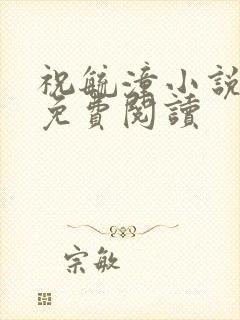 祝毓漳小說
免費閱讀
宗敏